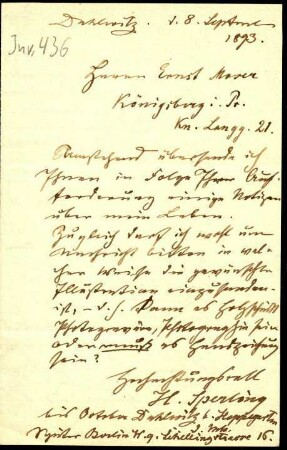 Dahlwitz. d. 8. September
1893.
Inv. 436
Herrn Ernst Moser
Königsberg i. Pr.
Kn. Langg. 21.
übersende ich
Ihnen in Folge Ihrer Auf-
forderung einige Notizen
über mein Leben.
Zugleich darf ich wohl um
Nachricht bitten in wel-
cher Weise die gewünschte
Illustration einzusenden
ist, – d. h. kann es Holzschnitt
Photogravure, Photographie sein
oder muß es Handzeichnung
sein?
Hochachtungsvoll
H. Sperling
bis October Dahlwitz b. Hoppegarten
Später Berlin W. 9. Schellingstrasse 16.